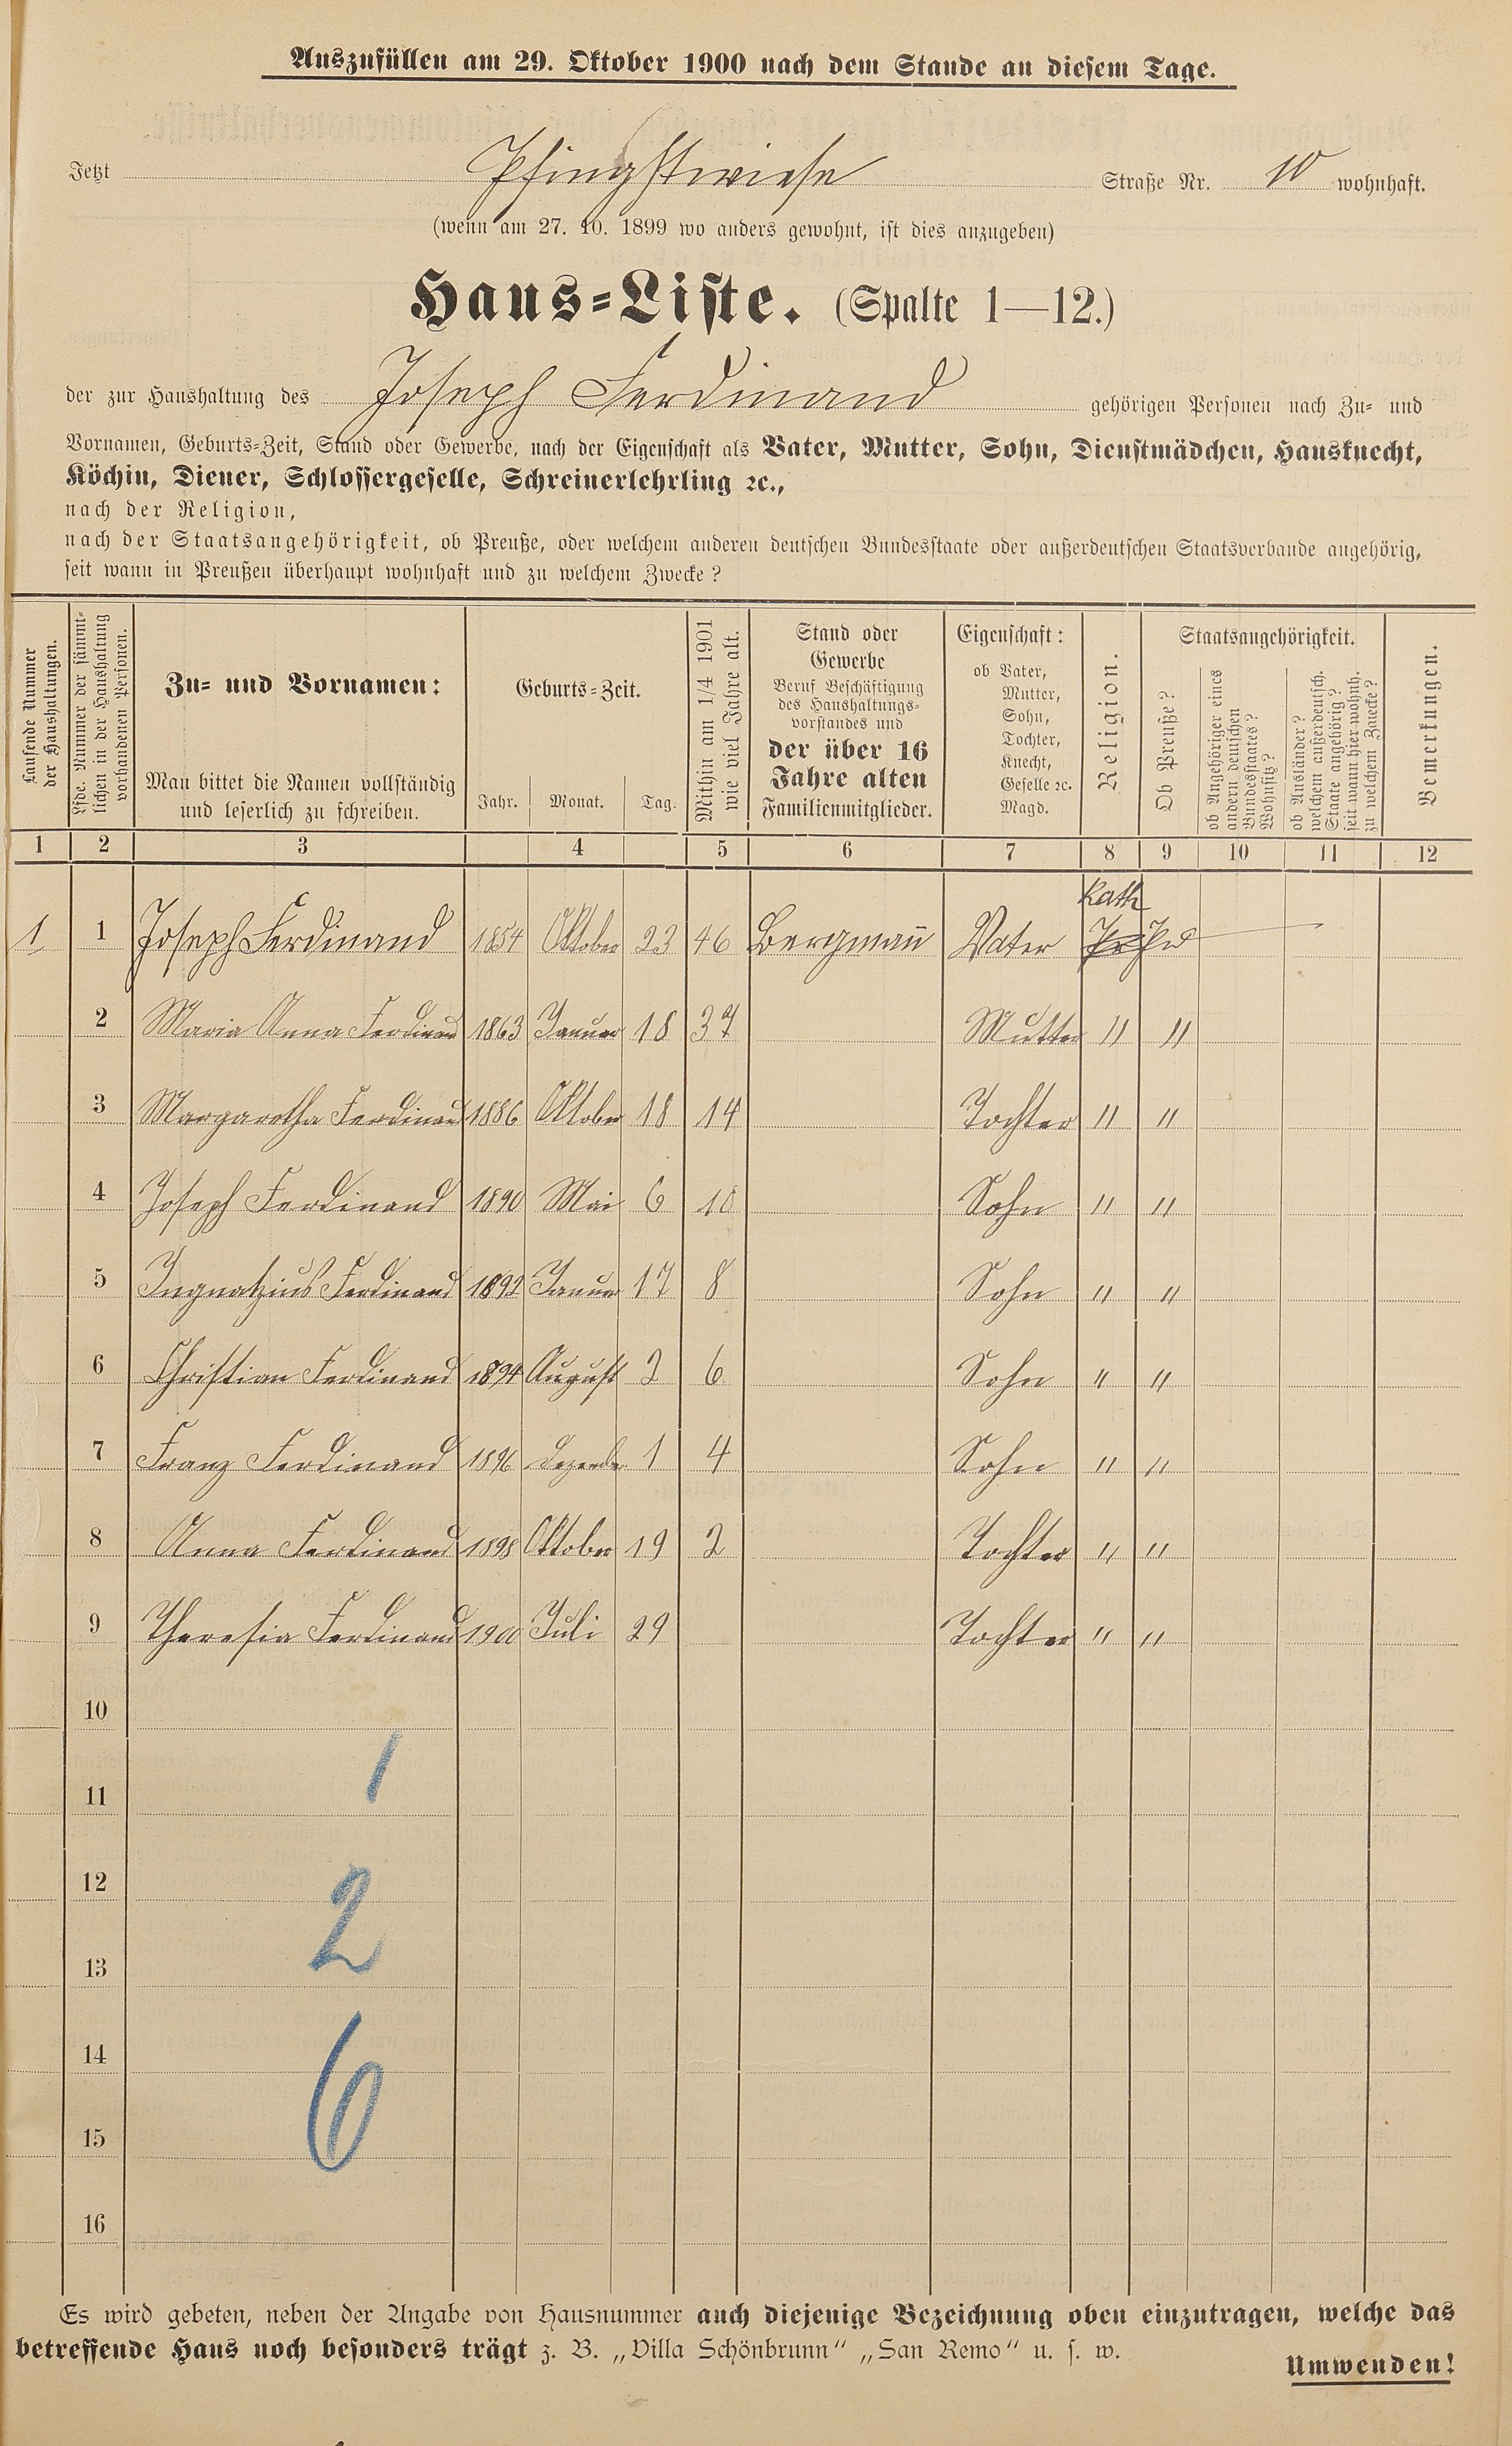 Auszufüllen am 29. Oktober 1900 nach dem Stande an diesem Tage.
Jetzt Pfingstwiese Straße Nr. 10 wohnhaft.
(wenn am 27. 10. 1899 wo anders gewohnt, ist dies anzugeben)
Haus-Liste. (Spalte 1—12.)
der zur Haushaltung des Joseph Ferdinand gehörigen Personen nach Zu- und
Vornamen, Geburts-Zeit, Stand oder Gewerbe, nach der Eigenschaft als Vater, Mutter, Sohn, Dienstmädchen, Hausknecht,
Köchin, Diener, Schlossergeselle, Schreinerlehrling ꝛc.,
nach der Religion,
nach der Staatsangehörigkeit, ob Preuße, oder welchem anderen deutschen Bundesstaate oder außerdeutschen Staatsverbande angehörig,
seit wann in Preußen überhaupt wohnhaft und zu welchem Zwecke?
Laufende Nummer
der Haushaltungen.
Lfde. Nummer der sämmt-
lichen in der Haushaltung
vorhandenen Personen.
Zu- und Vornamen:
Man bittet die Namen vollständig
und leserlich zu schreiben.
Geburts-Zeit.
Jahr. Monat. Tag.
Mithin am 1/4 1901
wie viel Jahre alt.
Stand oder
Gewerbe
Beruf Beschäftigung
des Haushaltungs-
vorstandes und
der über 16
Jahre alten
Familienmitglieder.
Eigenschaft:
ob Vater,
Mutter,
Sohn,
Tochter,
Knecht,
Geselle ꝛc.
Magd.
Religion.
Staatsangehörigkeit.
Ob Preuße?
ob Angehöriger eines
andern deutschen
Bundesstaates?
Wohnsitz?
ob Ausländer?
welchem außerdeutsch.
Staate angehörig?
seit wann hier wohnh.
zu welchem Zwecke?
Bemerkungen.
1 2 3 4 5 6 7 8 9 10 11 12
Kath
1 1 Joseph Ferdinand 1854 Oktober 23 46 Bergmañ Vater Pr Pr
2 Maria Anna Ferdinand 1863 Januar 18 37 Mutter " "
3 Margaretha Ferdinand 1886 Oktober 18 14 Tochter " "
4 Joseph Ferdinand 1890 Mai 6 10 Sohn " "
5 Ingnatzius Ferdinand 1892 Januar 17 8 Sohn " "
6 Christian Ferdinand 1894 August 2 6 Sohn " "
7 Franz Ferdinand 1896 Dezember 1 4 Sohn " "
8 Anna Ferdinand 1898 Oktober 19 2 Tochter " "
9 Theresia Ferdinand 1900 Juli 29 Tochter " "
10
1
11
12
2
13
14
6
15
16
Es wird gebeten, neben der Angabe von Hausnummer auch diejenige Bezeichnung oben einzutragen, welche das
betreffende Haus noch besonders trägt z. B. „Villa Schönbrunn" „San Remo" u. s. w.
Umwenden!